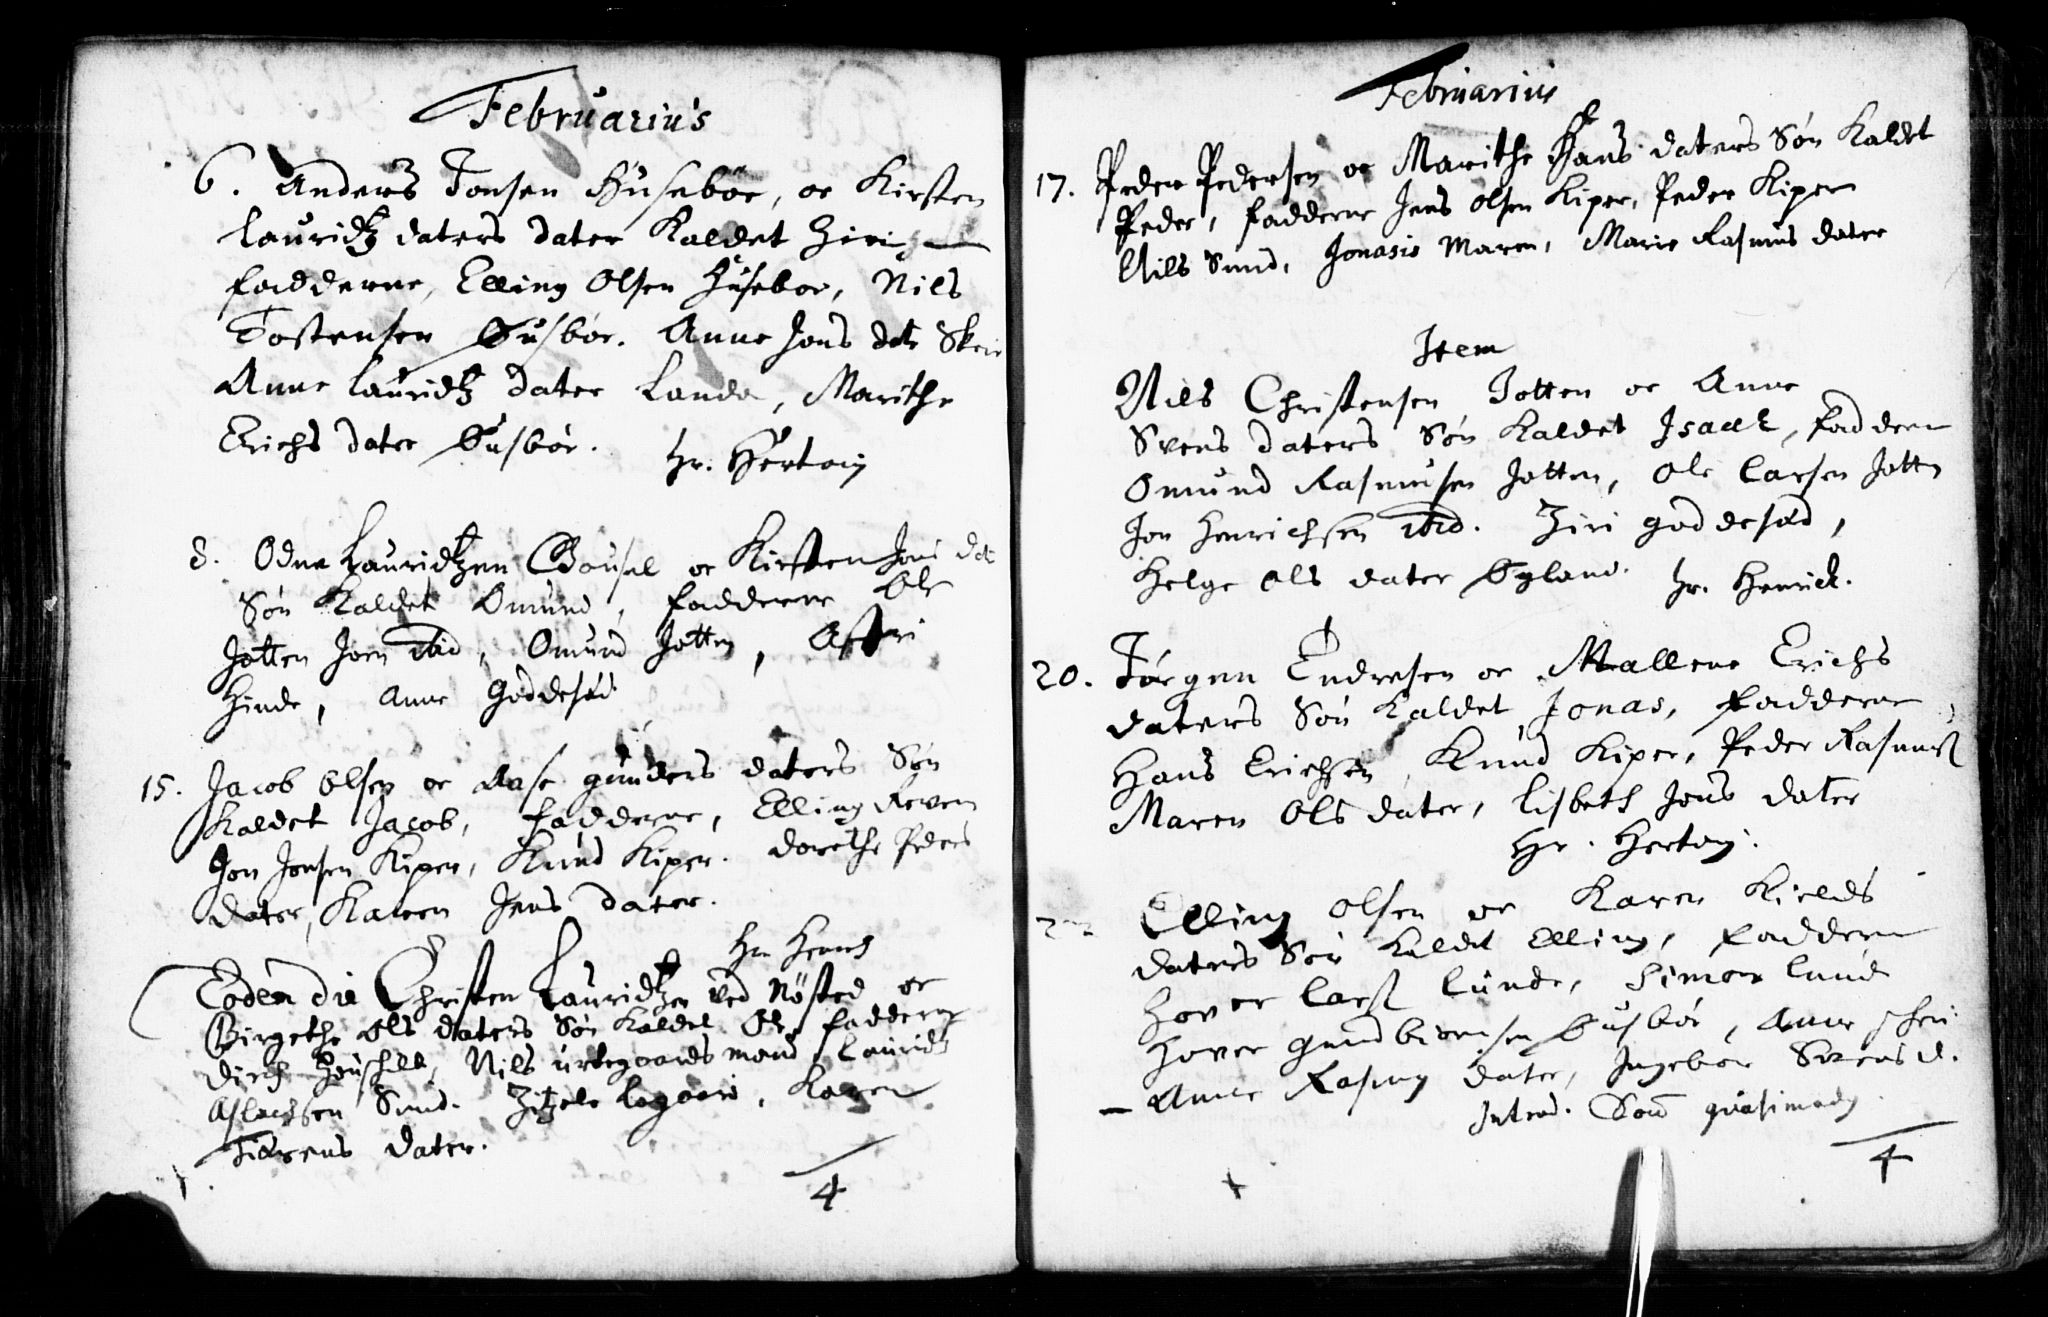 Februarius
6. Anders Tonsen Husebøe, oc Kirsten
Lauridtz daters dater Kaldet Ziri
fadderne, Elling Olsen Huseboe, Nils
Tostensen Husbøe. Anne Jons dat Skeie
Anne Lauridtz dater Lande, Marithe
Erichs dater Husbøe.
hr. Hertvig
8. Odne Lauridtzen Gousel oc Kirsten Jons dat
Søn Kaldet Omund, fadderne Ole
Jotten Joen ibid, Omund Jotten, Astri
Hinde, Anne Goddesød
15. Jacob Olsen oc Aase gunders daters Søn
Kaldet Jacob, fadderne, Elling Reven
Jon Jonsen Kiper, Knud Kiper. Dorethe Peders
dater, Karen Jens dater.
hr. Henrich
Eodem die Christen Lauridtzen ved Nøsted oc
Birgethe Ols daters Søn Kaldet Ole, fadderne
Dirch, Nils urtegaards mand, Lauridtz
Aslacksen Sund. Zitzele Lagaard, Karen
Tiørens dater.
4
Februarius
17. Peder Pedersen oc Marithe Hans daters Søn Kaldet
Peder, fadderne Jens Olsen Kiper, Peder Kiper
Nils Sund, Jonasis Maren, Marie Rasmus dater
Item
Nils Christensen Jotten oc Anne
Svens daters Søn Kaldet Isack, faddern
Omund Rasmusen Jotten, Ole Larsen Jotten
Jon Henrichsen ibid. Ziri goddesød,
Helge Ols dater Byland. hr. Henrick.
20. Jørgen Endresen oc Mallene Erichs
daters Søn Kaldet Jonas, fadderne
Hans Erichsen, Knud Kiper, Peder Rasmus
Maren Ols dater, Lisbeth Jons dater
Hr. Hertvig.
22 Elling Olsen oc Karen Kields
daters Søn Kaldet Elling, faddern
Hover Lars Lunde, Simon Lund
Hover gundbiørnsen Husbøe, Anne Skei
Anne Rasmus dater, Ingebor Svens d.
Introd. Dom quasimodog.
4